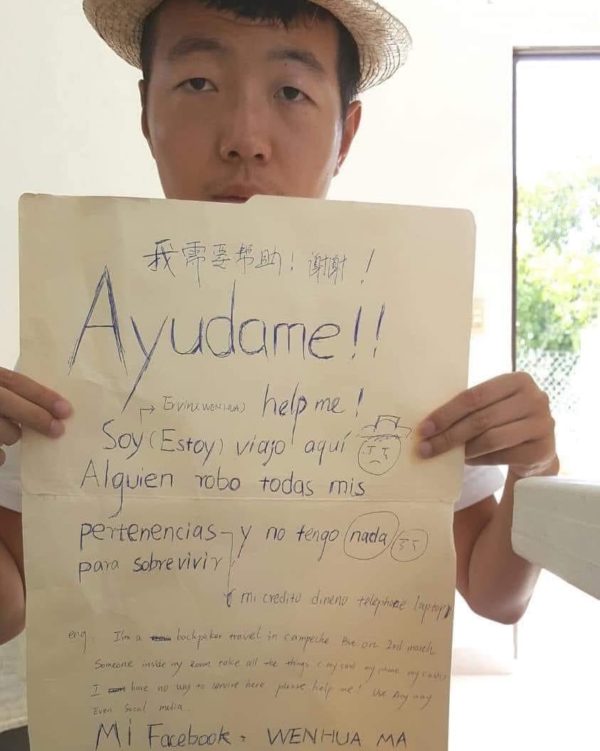 我需要帮助！谢谢！
Ayudame!!
→ Ervin(WENHUA) help me!
Soy (Estoy) viajo aquí
Alguien robo todas mis
pertenencias y no tengo nada
para sobrevivir
mi credito dineno telephone laptop
eng: I'm a backpaker travel in campeche But on 2nd march
Someone inside my room take all the things (my card my phone my cash)
I have no way to survive here please help me! Use Any way
Even Social media.
Mi Facebook: WENHUA MA